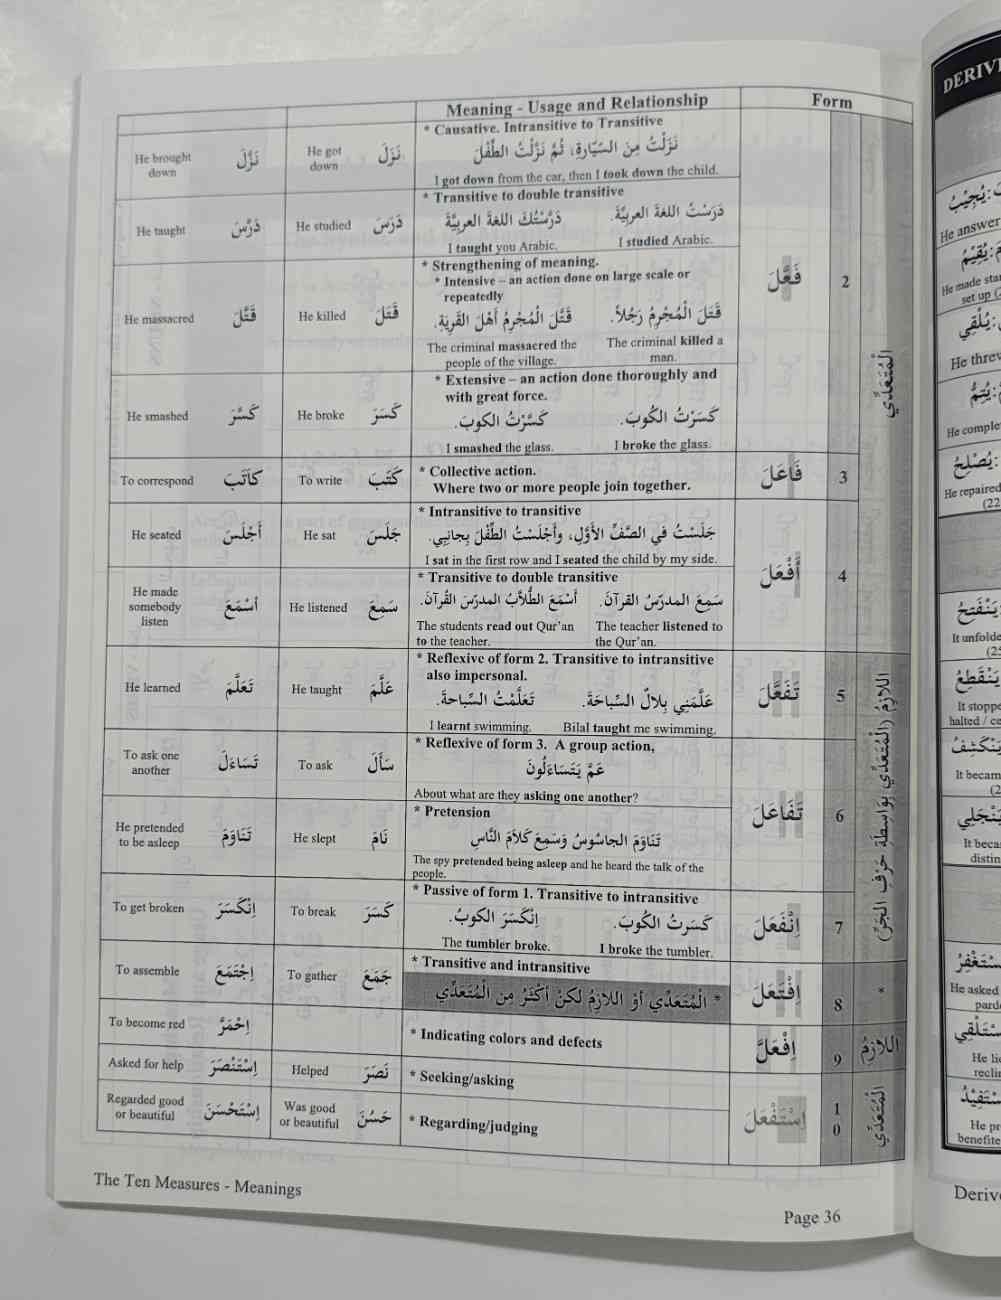 Meaning - Usage and Relationship
Form
He brought down
نَزَّلَ
He got down
نَزَلَ
* Causative. Intransitive to Transitive
نَزَلْتُ مِنَ السَّيّارةِ، ثُمَّ نَزَّلْتُ الطِّفْلَ
I got down from the car, then I took down the child.
فَعَّلَ
2
الْمُتَعَدِّي
He taught
دَرَّسَ
He studied
دَرَسَ
* Transitive to double transitive
دَرَسْتُ اللغةَ العربِيَّةَ.
دَرَّسْتُكَ اللغةَ العربِيَّةَ
I taught you Arabic.
I studied Arabic.
He massacred
قَتَّلَ
He killed
قَتَلَ
* Strengthening of meaning.
* Intensive – an action done on large scale or
repeatedly
قَتَلَ الْمُجْرِمُ رَجُلاً.
قَتَّلَ الْمُجْرِمُ أَهْلَ القَريَةِ.
The criminal massacred the
people of the village.
The criminal killed a
man.
He smashed
كَسَّرَ
He broke
كَسَرَ
* Extensive – an action done thoroughly and
with great force.
كَسَرْتُ الكُوبَ.
كَسَّرْتُ الكوبَ.
I smashed the glass.
I broke the glass.
To correspond
كاَتَبَ
To write
كَتَبَ
* Collective action.
Where two or more people join together.
فَاعَلَ
3
He seated
أَجْلَسَ
He sat
جَلَسَ
* Intransitive to transitive
جَلَسْتُ في الصَّفِّ الأَوَّلِ، وأَجْلَسْتُ الطِّفْلَ بِجانِبِي.
I sat in the first row and I seated the child by my side.
أَفْعَلَ
4
He made
somebody
listen
أَسْمَعَ
He listened
سَمِعَ
* Transitive to double transitive
سَمِعَ المدرّسُ القرآنَ.
أَسْمَعَ الطُّلاَّبُ المدرّسَ القُرآنَ.
The students read out Qur’an
to the teacher.
The teacher listened to
the Qur’an.
He learned
تَعَلَّمَ
He taught
عَلَّمَ
* Reflexive of form 2. Transitive to intransitive
also impersonal.
عَلَّمَنِي بِلالٌ السِّباحَةَ.
تَعَلَّمْتُ السِّباحةَ.
I learnt swimming.
Bilal taught me swimming.
تَفَعَّلَ
5
اللازِمُ (الْمُتَعَدِّي بِوَاسِطَة حَرْف الجَرِّ)
To ask one
another
تَسَاءَلَ
To ask
سَأَلَ
* Reflexive of form 3. A group action,
عَمَّ يَتَسَاءَلُونَ
About what are they asking one another?
تَفَاعَلَ
6
He pretended
to be asleep
تَنَاوَمَ
He slept
نَامَ
* Pretension
تَنَاوَمَ الجاسُوسُ وَسَمِعَ كَلاَمَ النَّاسِ
The spy pretended being asleep and he heard the talk of the
people.
To get broken
اِنْكَسَرَ
To break
كَسَرَ
* Passive of form 1. Transitive to intransitive
كَسَرتُ الكُوبَ.
اِنْكَسَرَ الكوبُ.
The tumbler broke.
I broke the tumbler.
اِنْفَعَلَ
7
To assemble
اِجْتَمَعَ
To gather
جَمَعَ
* Transitive and intransitive
* الْمُتَعَدِّي أوْ اللازِمُ لكنْ أَكْثَرُ مِن الْمُتَعَدِّي
اِفْتَعَلَ
8
*
To become red
اِحْمَرَّ
* Indicating colors and defects
اِفْعَلَّ
9
اللازِمُ
Asked for help
اِسْتَنْصَرَ
Helped
نَصَرَ
* Seeking/asking
اِسْتَفْعَلَ
1
0
الْمُتَعَدِّي
Regarded good
or beautiful
اِسْتَحْسَنَ
Was good
or beautiful
حَسُنَ
* Regarding/judging
The Ten Measures - Meanings
Page 36
He answer
He made
set up
He threw
He comple
He repaired
It unfolde
It stoppe
halted / ce
It becam
It beca
distin
He asked
pard
He li
recli
He pr
benefite